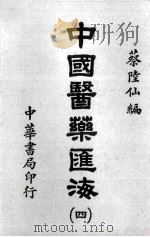 蔡陸仙編
中國醫藥匯海
(四)
中華書局印行
www.toptushu.com